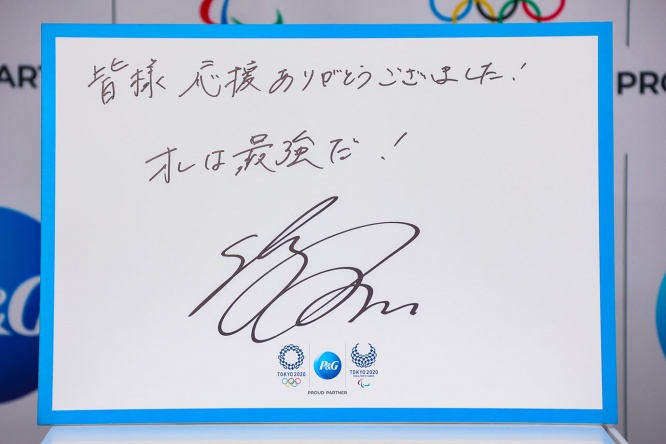 PART
PRO
皆様 応援ありがとうございました!
オレは最強だ!
P&G
TOKYO 2020
P&G
TOKYO 2020
PROUD PARTNER